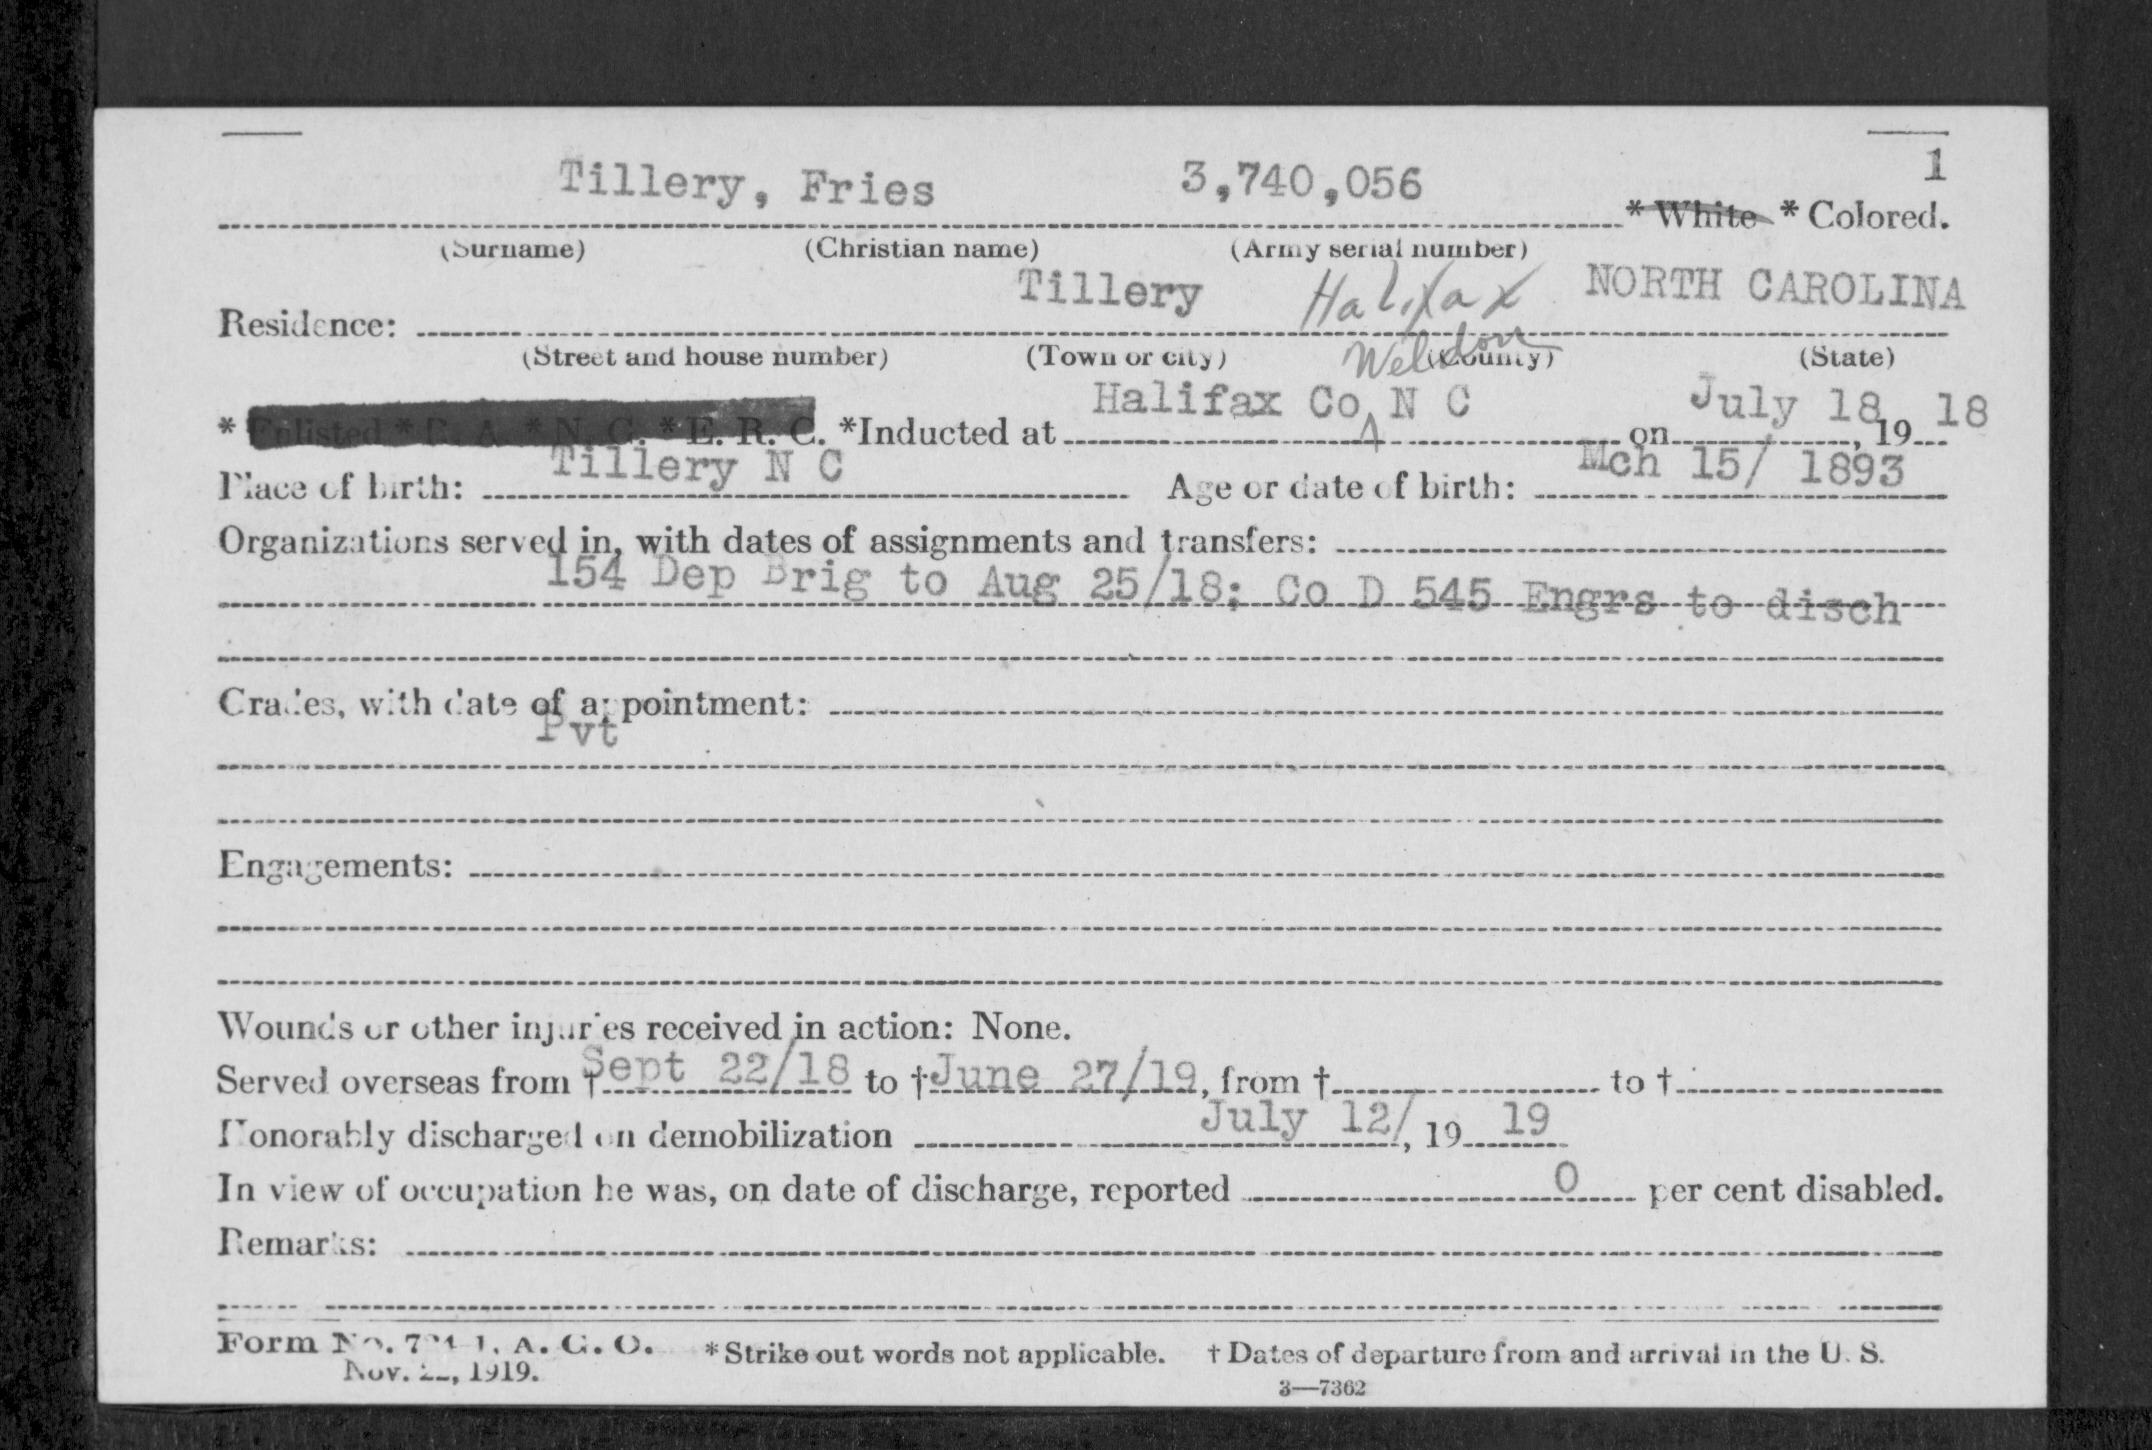 1
Tillery, Fries 3,740,056 * White * Colored.
(Surname) (Christian name) (Army serial number)
Tillery Halifax NORTH CAROLINA
Residence:
(Street and house number) (Town or city) (County) (State)
Weldon
Halifax Co N C July 18 18
* Enlisted * R. A. * N. G. * E. R. C. *Inducted at on , 19
Tillery N C Mch 15/ 1893
Place of birth: Age or date of birth:
Organizations served in, with dates of assignments and transfers:
154 Dep Brig to Aug 25/18; Co D 545 Engrs to disch
Grades, with date of appointment:
Pvt
Engagements:
Wounds or other injuries received in action: None.
Served overseas from † Sept 22/18 to † June 27/19, from † to †
Honorably discharged on demobilization July 12/, 19 19
In view of occupation he was, on date of discharge, reported 0 per cent disabled.
Remarks:
Form No. 724-1, A. G. O. * Strike out words not applicable. † Dates of departure from and arrival in the U. S.
Nov. 22, 1919.
3—7362